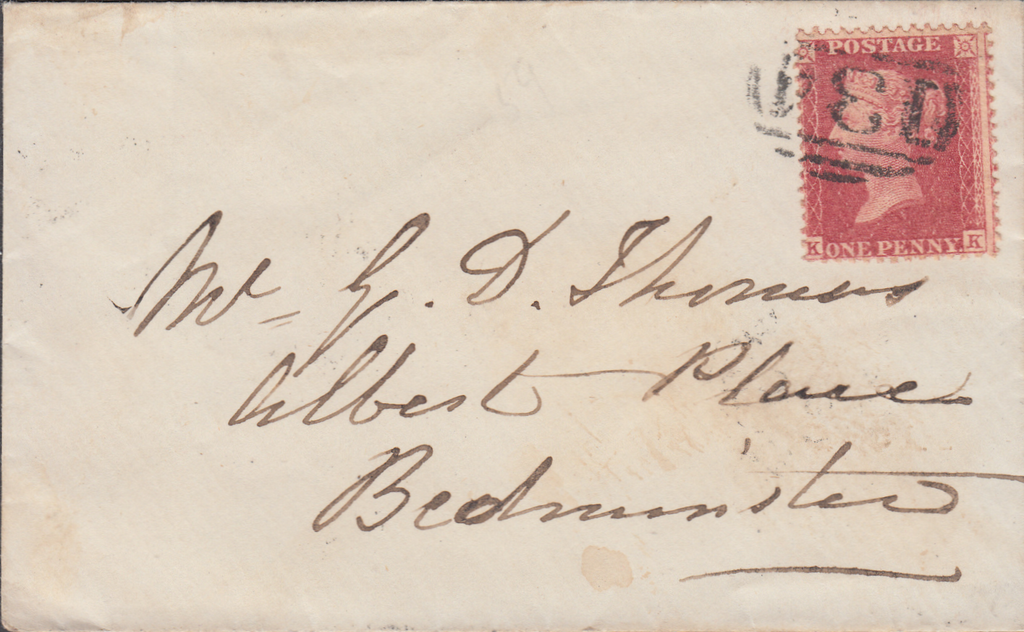 59
POSTAGE
K ONE PENNY K
Mr G. D. Thomas
Albert Place
Bedminster